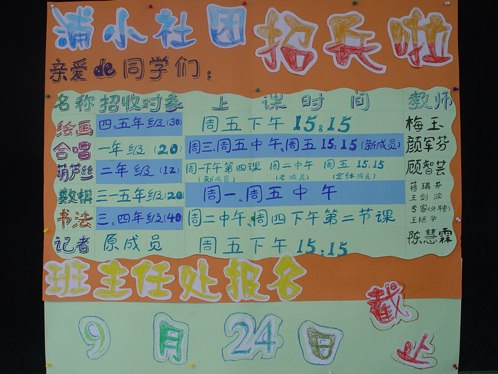 浦小社团招兵啦
亲爱de同学们：
名称 招收对象 上课时间 教师
绘画 四、五年级(30) 周五下午15:15 梅玉
合唱 一年级(20) 周三、周五中午、周五15:15(新成员) 顾军芬
葫芦丝 二年级(12) 周一下午第四课 周二中午 周五15.15 顾智芸
(新成员) (老成员) (全体成员)
数棋 三－五年级(20) 周一、周五中午
书法 三、四年级(40) 周二中午、周四下午第二节课
记者 原成员 周五下午15:15 陈慧霖
班主任处报名
9月24日截止